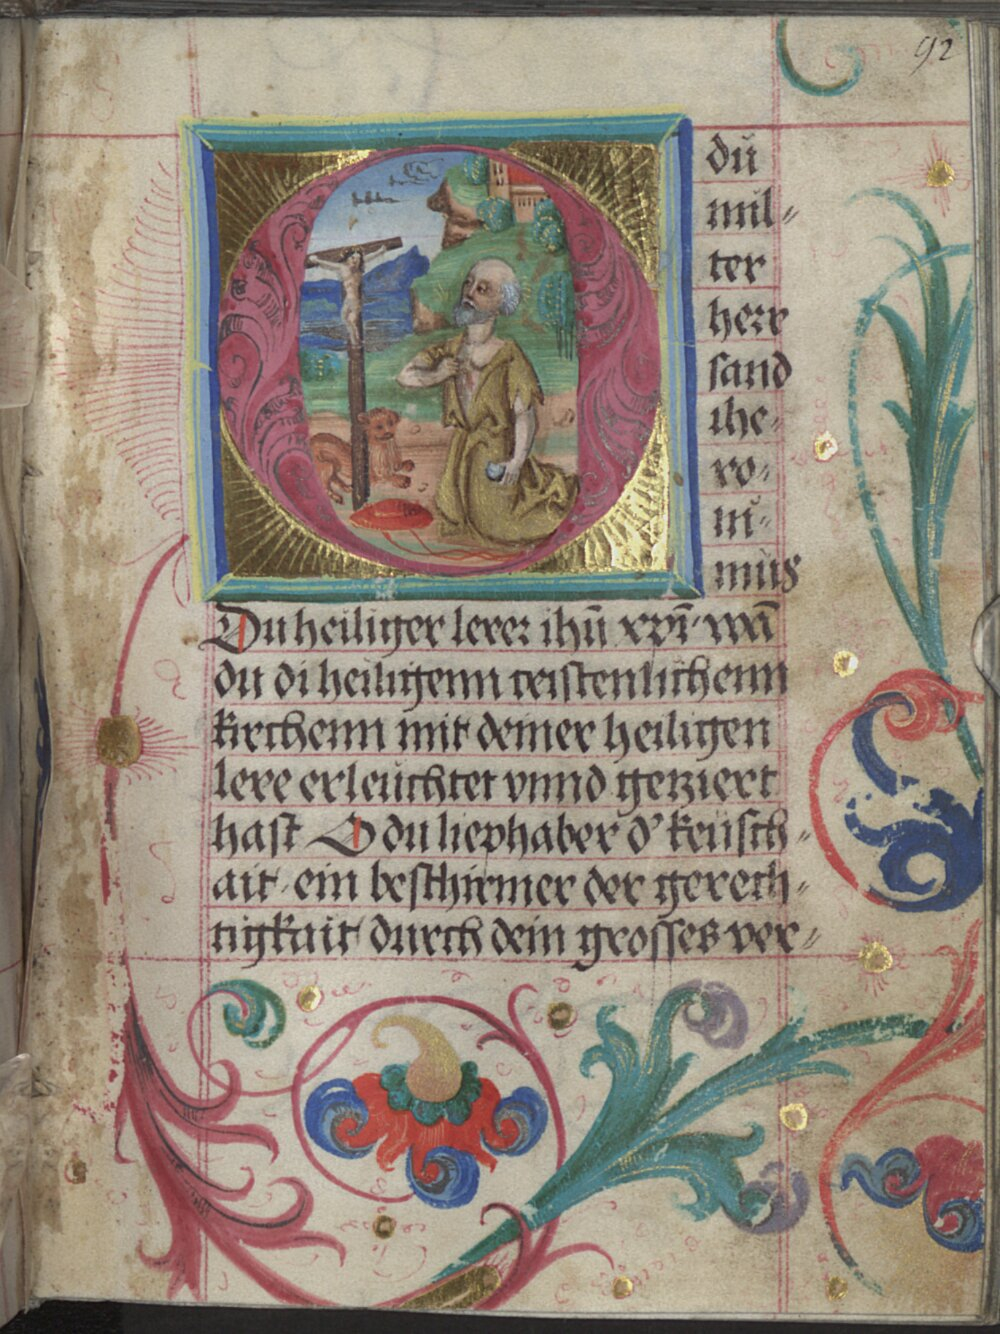 92
O
dū
mil⸗
ter
herr
sand
ihe⸗
ro⸗
ni⸗
mus
Du heiliger lerer ihū xp̄i wā
du di heiligenn cristenlichenn
kirchenn mit deiner heiligen
lere erleuchtet vnnd geziert
hast O du liephaber d' keusch⸗
ait ein beschirmer der gerech⸗
tigkait durch dein grosses ver⸗